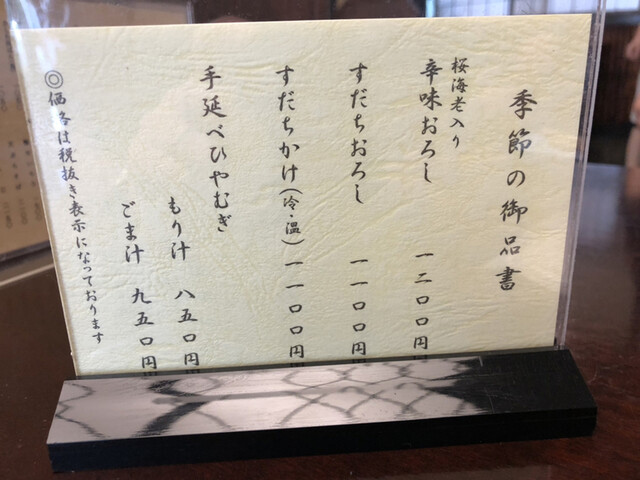 季節の御品書
桜海老入り
辛味おろし 一二〇〇円
すだちおろし 一一〇〇円
すだちかけ(冷・温) 一一〇〇円
手延べひやむぎ
もり汁 八五〇円
ごま汁 九五〇円
◎価格は税抜き表示になっております